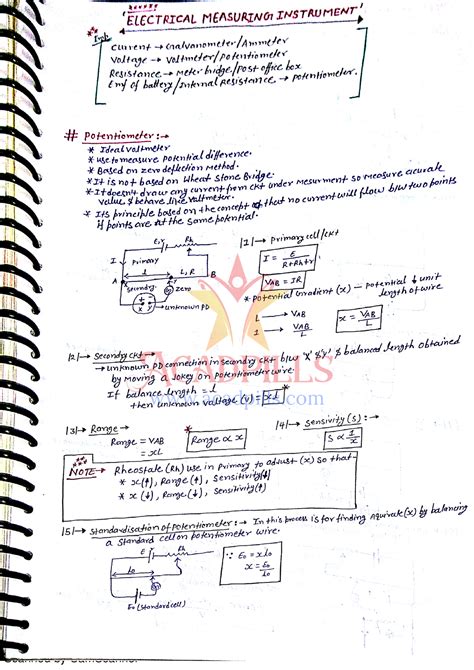 'ELECTRICAL MEASURING INSTRUMENT'
Imp.
Current → Galvanometer/Ammeter
Voltage → Voltmeter/Potentiometer
Resistance → Meter bridge/Post office box
Emf of battery/Internal Resistance → Potentiometer.
# Potentiometer:→
* Ideal voltmeter
* use to measure Potential difference.
* Based on zero deflection Method.
* It is not based on Wheat Stone Bridge.
* It doesn't draw any current from ckt under
value & behave like voltmeter.
* Its principle based on the concept that no current will flow b/w two points
if points are at the same potential.
E, r Rh
I Primary
l L, R
A B
Secondry Zero
x y
unknown PD
|1|→ Primary cell/ckt
I = E / R+Rh+r
VAB = IR
* Potential Gradient (x) → Potential ↓ unit
length of wire
L → VAB
1 → VAB / L
x = VAB / L
|2|→ Secondry ckt →
→ unknown PD connection in secondry ckt b/w 'x' & 'y' & balanced length obtained
by moving a Jokey on Potentiometer wire.
If balance length = l
then unknown voltage (V) = xl
ACADPILLS
www.acadpills.com
|3|→ Range
Range = VAB
= xL
Range ∝ x
|4|→ Sensivity (S):→
S ∝ 1/x
NOTE → Rheostate (Rh) use in Primary to adjust (x) so that
* x(↑), Range (↑), Sensitivity(↑)
* x (↓), Range (↓), Sensitivity(↓)
|5|→ Standardisation of Potentiometer:→ In this process is for finding (x) by balancing
a Standard cell on potentiometer wire.
E Rh
l0
E0 (Standard cell)
∵ E0 = xl0
x = E0 / l0
Scanned by CamScanner